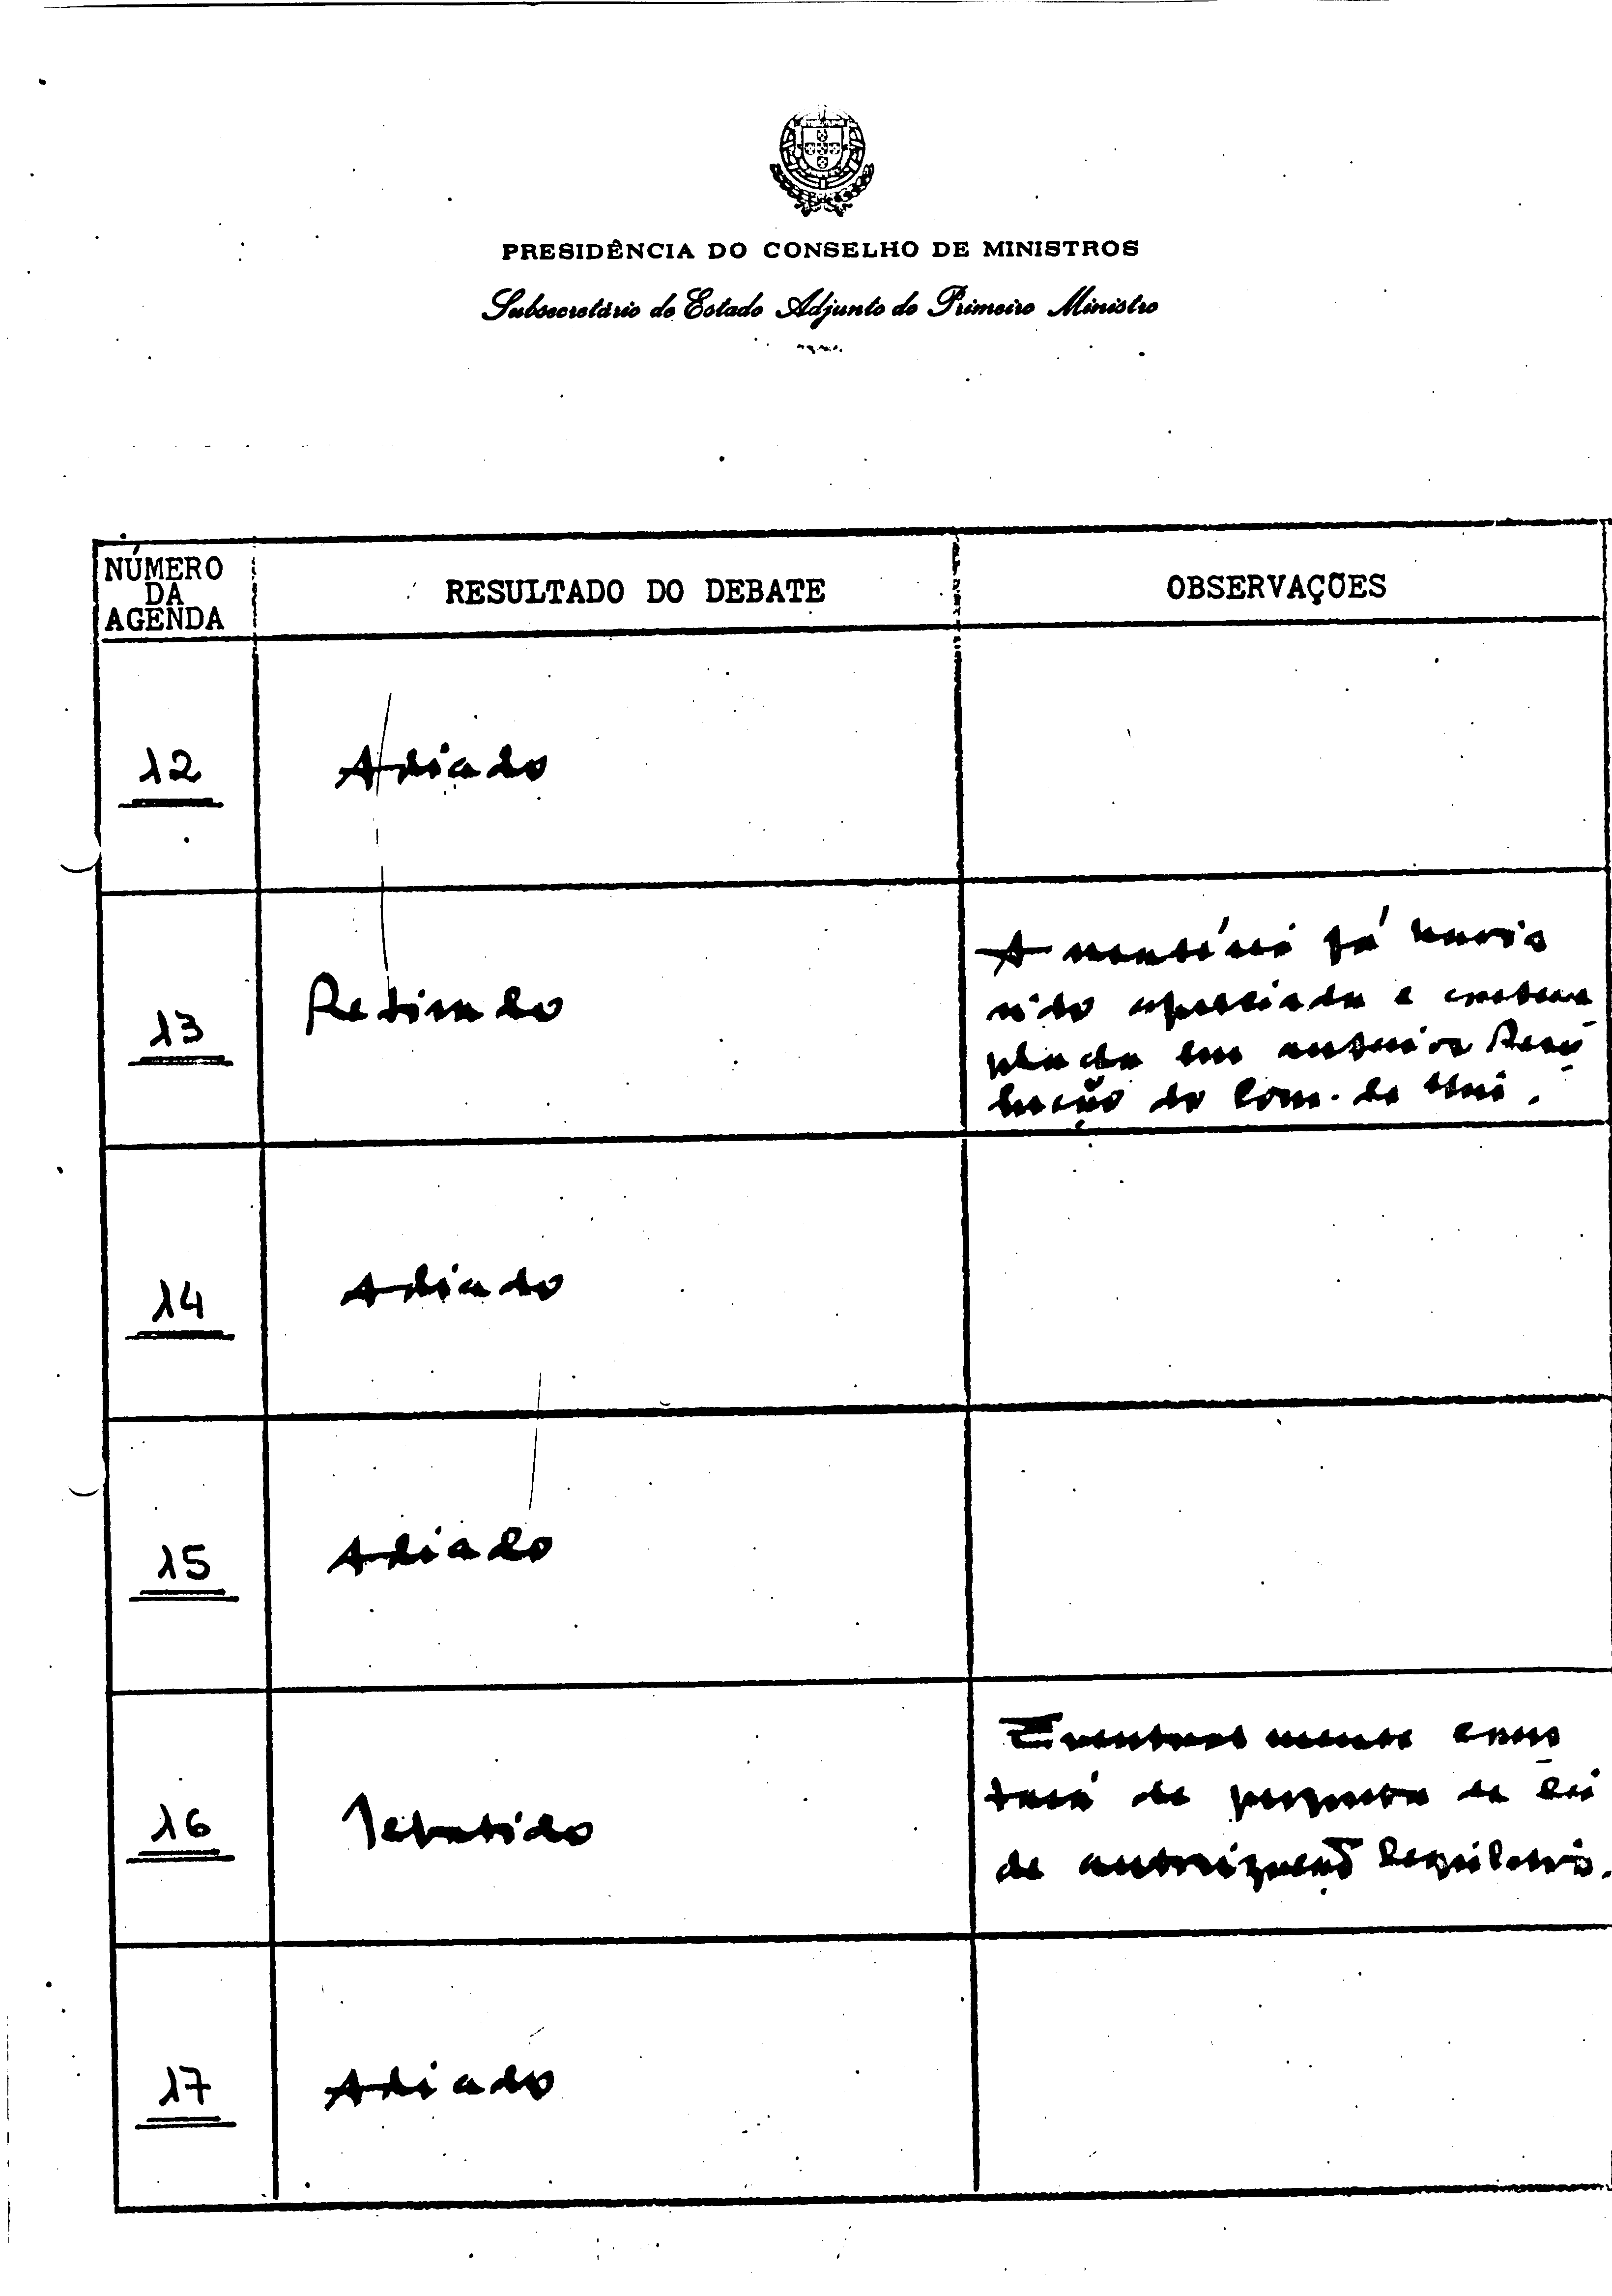 PRESIDÊNCIA DO CONSELHO DE MINISTROS
Subsecretário de Estado Adjunto do Primeiro Ministro
NÚMERO
DA
AGENDA
RESULTADO DO DEBATE
OBSERVAÇÕES
12
Adiado
13
Retirado
A matéria já havia
sido apreciada e contem
plada em anterior Reso
lução do Com. de Min.
14
Adiado
15
Adiado
16
Debatido
Eventualmente cons
tará de proposta de lei
de autorização legislativa.
17
Adiado